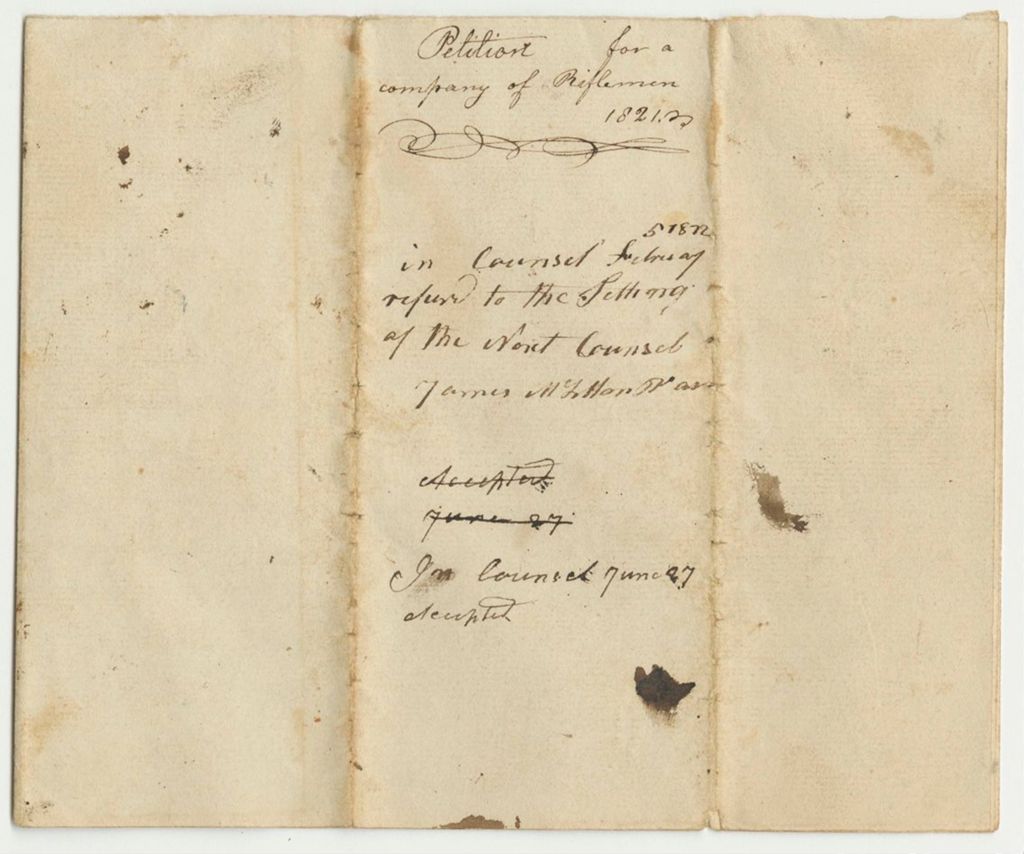 Petition for a
company of Riflemen
1821.
5 182
in Counsel Februay
refurd to the Setting
of the Next Counsel
James
Accepted
June 27
In Counsel June 27
Accepted